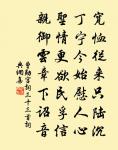 寬恤從來只陸沉
丁寧今始慰人心
聖情更欲民孚信
親御雲章下詔音
曹勛宮詞三十三首